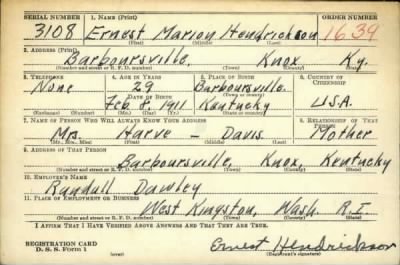 SERIAL NUMBER 1. NAME (Print) ORDER NUMBER
3108 Ernest Marion Hendrickson 1639
(First) (Middle) (Last)
2. ADDRESS (Print)
Barboursville, Knox Ky.
(Number and street or R. F. D. number) (Town) (County) (State)
3. TELEPHONE 4. AGE IN YEARS 5. PLACE OF BIRTH 6. COUNTRY OF CITIZENSHIP
None 29 Barboursville,
DATE OF BIRTH
Feb 8, 1911 Kentucky U.S.A.
(Mo.) (Day) (Yr.) (State or country)
7. NAME OF PERSON WHO WILL ALWAYS KNOW YOUR ADDRESS 8. RELATIONSHIP OF THAT PERSON
Mrs. Harve - Davis Mother
(Mr., Mrs., Miss) (First) (Middle) (Last)
9. ADDRESS OF THAT PERSON
Barboursville, Knox, Kentucky
(Number and street or R. F. D. number) (Town) (County) (State)
10. EMPLOYER'S NAME
Randall Dawley
11. PLACE OF EMPLOYMENT OR BUSINESS
West Kingston, Wash. R.I.
(Number and street or R. F. D. number) (Town) (County) (State)
I AFFIRM THAT I HAVE VERIFIED ABOVE ANSWERS AND THAT THEY ARE TRUE.
REGISTRATION CARD Ernest Hendrickson
D. S. S. Form 1 (over) (Registrant's signature)